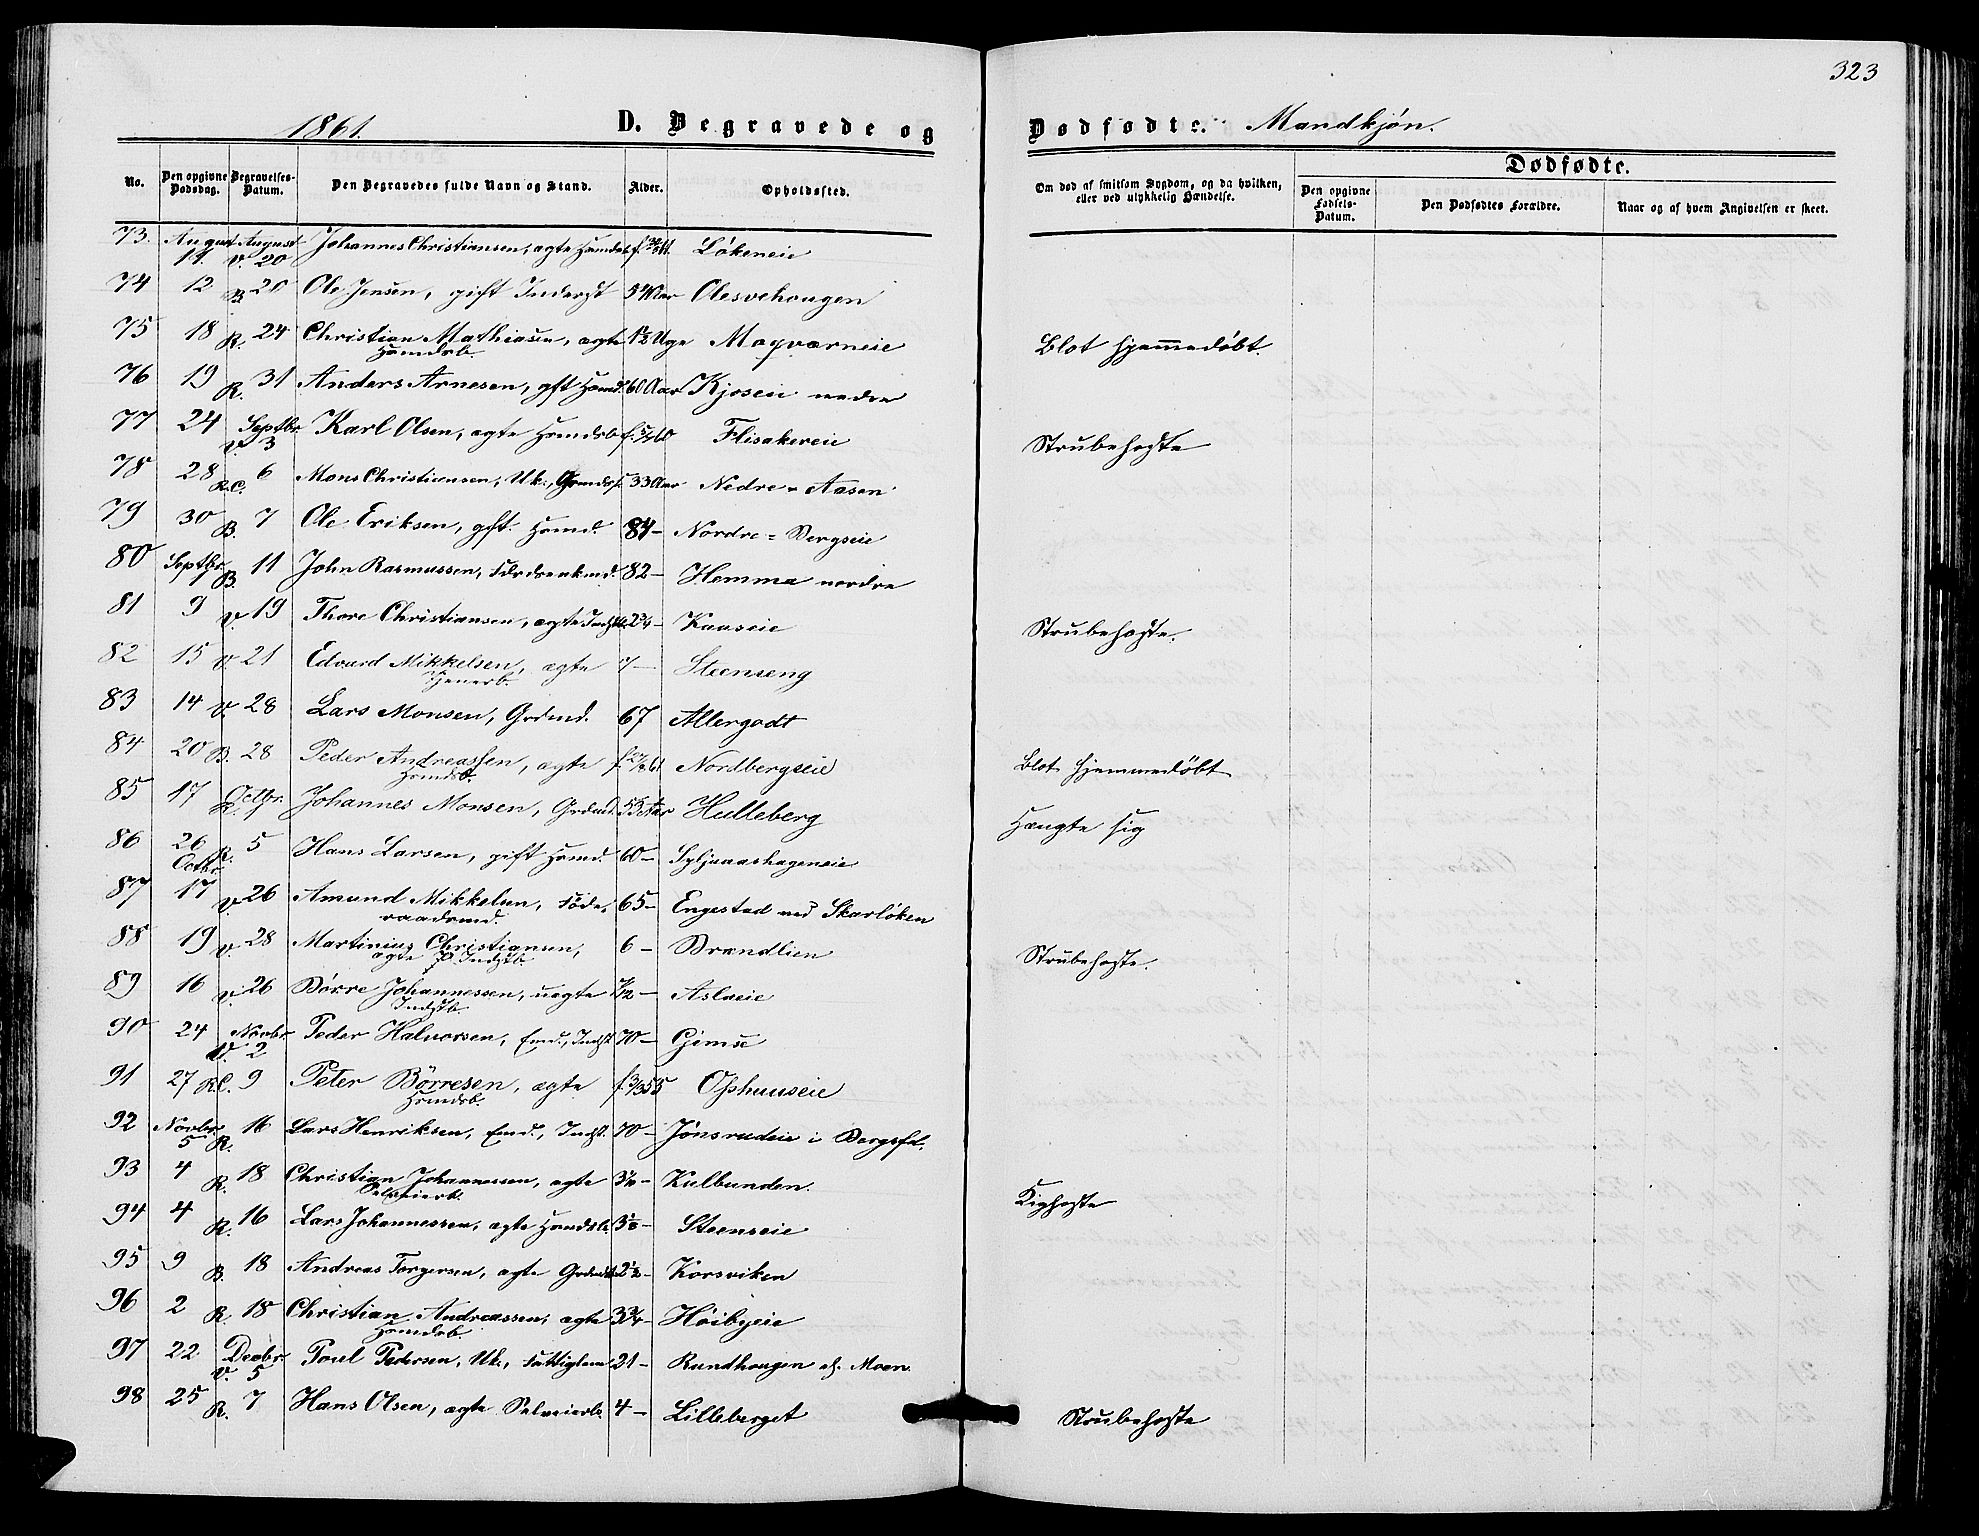 323
1861. D. Begravede og Dødfødte. Mandkjøn.
No. Den opgivne Dødsdag. Begravelses-Datum. Den Begravedes fulde Navn og Stand. Alder. Opholdssted. Om død af smitsom Sygdom, og da hvilken, eller ved ulykkelig Hændelse. Dødfødte.
Den opgivne Fødsels-Datum. Den Dødfødtes Forældre. Naar og af hvem Angivelsen er skeet.
73. August 11. August V. 20 Johannes Christiansen, ægte Løkeneie
74 12 B. 20 Ole Jensen, gift Inderst 54 Aar Olesvehougen
75 18 R. 24 Christian Mathiasen, ægte Hsmdsb. 1½ Uge Magværneie Blot hjemmedøbt.
76 19 R. 31 Anders Arnesen, gft Hsmd. 60 Aar Kjoseie nedre
77 24 Septbr. V. 3 Karl Olsen, ægte Hsmdsb. Flisakereie Strubehoste
78 28 R.C. 6 Mons Christiansen, Uk., 33 Aar Nedre-Aasen
79 30 B. 7 Ole Eriksen, gft. Hsmd. 84 – Nordre-Bergseie
80 Septbr. B. 11 John Rasmussen, 82 – Hemma nordre
81 9 V. 19 Thore Christiansen, ægte 2¾ – Kaaseie Strubehoste.
82 15 V. 21 Edvard Mikkelsen, ægte 7 – Steenseng
83 14 V. 28 Lars Monsen, Grdmd. 67 Allergodt
84 20 B. 28 Peder Andreassen, ægte Hsmdsb. Nordbergseie Blot hjemmedøbt
85 17 Octbr. R. Johannes Monsen, Grdmd. 55 Aar Hulleberg Hængte sig
86 26 R. 5 Hans Larsen, gift Hsmd. 60 – Syljuaashageneie
87 Octbr. 17 V. 26 Amund Mikkelsen, Føderaadsmd. 65 – Engestad ved Skarløken
88 19 V. 28 Martinius Christiansen, ægte Indstb. 6 – Brandlien Strubehoste.
89 16 V. 26 Børre Johannessen, uægte Indstb. Aslaeie
90 24 Novbr. V. 2 Peder Halvorsen, Emd., Indst. 70 – Gjemse
91 27 R.C. 9 Peter Børresen, ægte Hsmdsb. f. 3/3 55 Ophuuseie
92 Novbr. 5 R. 16 Lars Henriksen, Emd., Indst. 70 – Jønsrudeie i Bergsfd.
93 4 R. 18 Christian Johannessen, ægte Selveierb. Kulbunden.
94 4 R. 16 Lars Johannessen, ægte Hsmdsb. Steenseie Kighoste
95 9 B. 18 Andreas Torgersen, ægte 2½ – Korsviken
96 2 R. 18 Christian Andreassen, ægte Hsmdsb. 3¾ – Høibyeie
97 22 Decbr. V. 5 Poul Pedersen, Uk., Fattiglem 21 – Rundhougen af Moen
98 25 R. 7 Hans Olsen, ægte Selveierb. 4 – Lilleberget Strubehoste